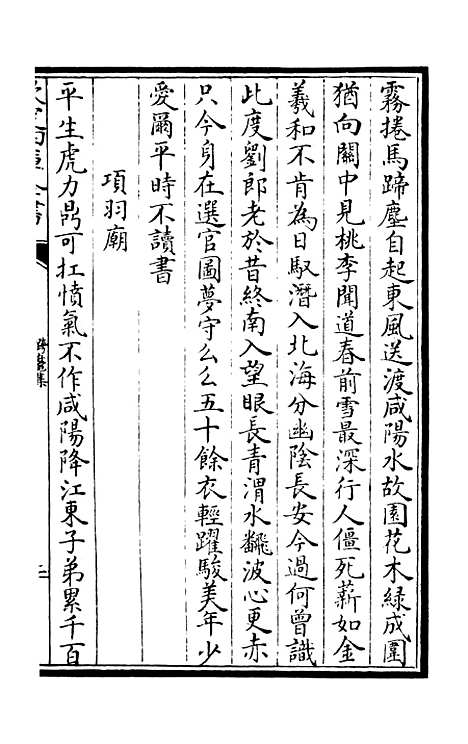 霧捲馬蹄塵自起東風送渡咸陽水故園花木綠成圍
猶向關中見桃李聞道春前雪最深行人僵死薪如金
羲和不肯為日馭潛入北海分幽陰長安今過何曾識
此度劉郎老於昔終南入望眼長青渭水飜波心更赤
只今身在選官圖夢守么么五十餘衣輕躍駿美年少
愛爾平時不讀書
項羽廟
平生虎力鼎可扛憤氣不作咸陽降江東子弟累千百
跨鼇集
二